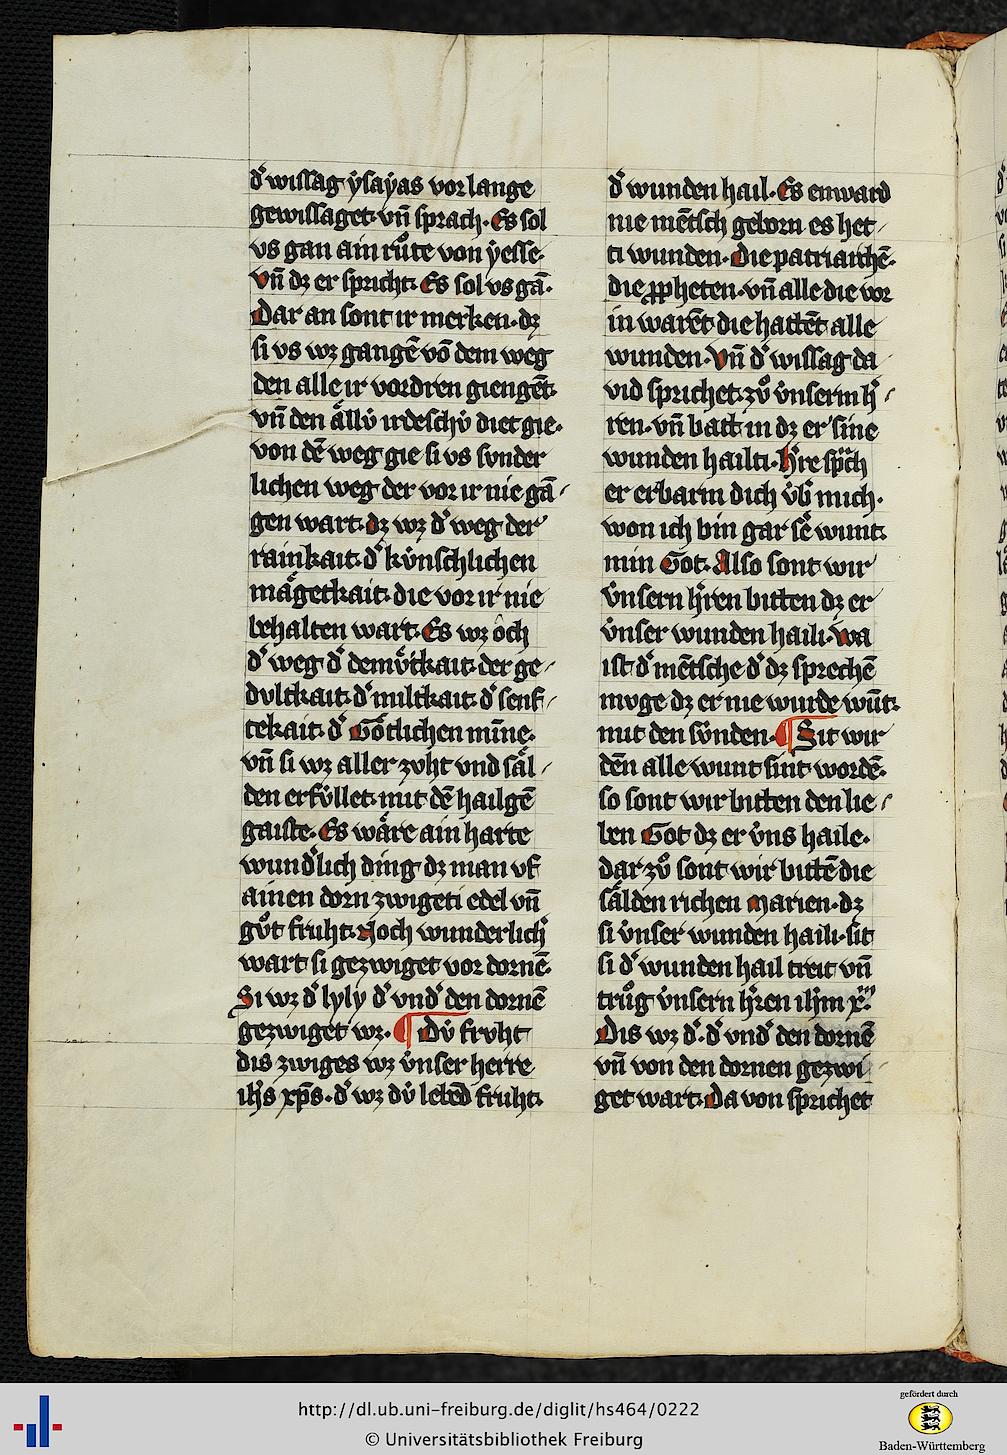 dˀ wissag ẏsaẏas vor lange
gewissaget· vn̄ sprach· Es sol
vs gan ain růte von ẏesse·
Vn̄ dz er spricht· Es sol vs gā·
Dar an sont ir merken· dz
si vs wz gangē vō dem weg
den alle ir vordren giengēt·
vn̄ den ållv̇ irdeschv̇ diet gie·
von dē weg gie si vs svnder
lichen weg der vor ir nie gā
gen wart· dz wz dˀ weg der
rainkait· dˀ kv̇nschlichen
mågetkait· die vor ir nie
behalten wart· Es wz ôch
dˀ weg dˀ demv̊tkait· der ge
dvltkait· dˀ miltkait· dˀ senf
tekait· dˀ Gőtlichen mīne·
vn̄ si wz aller zvht vnd sål
den erfv̇llet· mit dē hailgē
gaiste· Es wåre ain harte
wundˀlich ding dz man vf
ainen dorn zwigeti edel vn̄
gůt fruht· Noch wunderlichˀ
wart si gezwiget vor dornē·
Si wz dˀ lyly dˀ vndˀ den dornē
gezwiget wz· ¶ Dv̇ frvht
dis zwiges wz v̇nser herre
ihs̄ xp̄s· dˀ wz dv̇ lebēd fruht·
dˀ wunden hail· Es enward
nie mētsch geborn es het
ti wunden· Die patriarchē·
die ꝓpheten· vn̄ alle die vor
in warēt die hattēt alle
wunden· Vn̄ dˀ wissag da
vid sprichet· zů v̇nserm hˀ
ren· vn̄ batt in dz er sine
wunden hailti· Hˀre spᵃch
er erbarm dich v̇bˀ mich·
won ich bin gar sē wunt·
min Got· Also sont wir
v̇nsern hˀren bitten dz er
v̇nser wunden haili· Wa
ist dˀ mētsche dˀ dz sprechē
mvge dz er nie wurde wūt·
mit den sv̇nden· ¶ Sit wir
dēn alle wunt sint wordē·
so sont wir bitten den lie
ben Got dz er v̇ns haile·
dar zů sont wir bittē die
sålden richen Marien· dz
si v̇nser wunden haili· sit
si dˀ wunden hail treit vn̄
trůg v̇nsern hˀren ihm̄ x̄m·
Dis wz dˀ· dˀ vndˀ den dornē
vn̄ von den dornen gezwi
get wart· Da von sprichet
http://dl.ub.uni-freiburg.de/diglit/hs464/0222
© Universitätsbibliothek Freiburg
gefördert durch
Baden-Württemberg